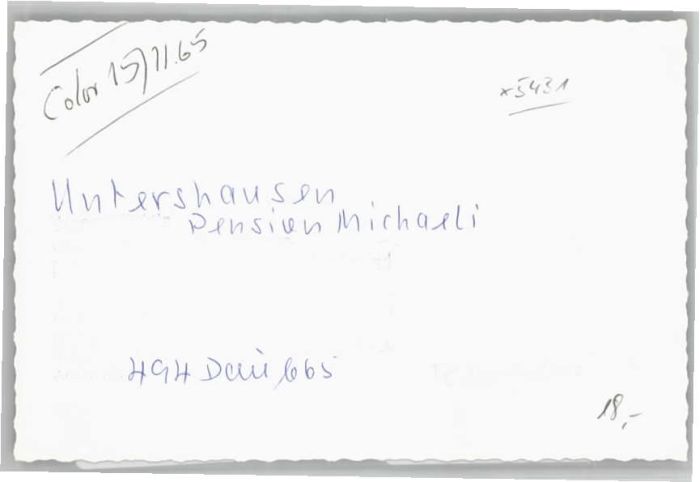 Color 15/11.65
*5431
Untershausen
Pension Michaeli
494 665
18,-